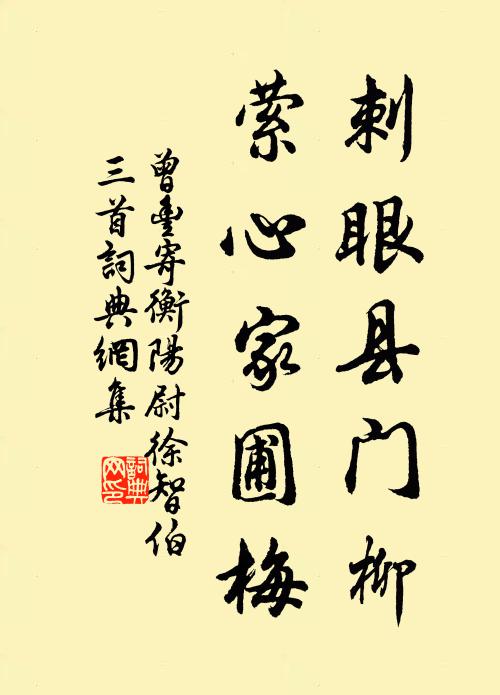 刺眼县门柳
萦心家圃梅
曾豐寄衡陽尉徐智伯
三首詞典網集
詞典
网印